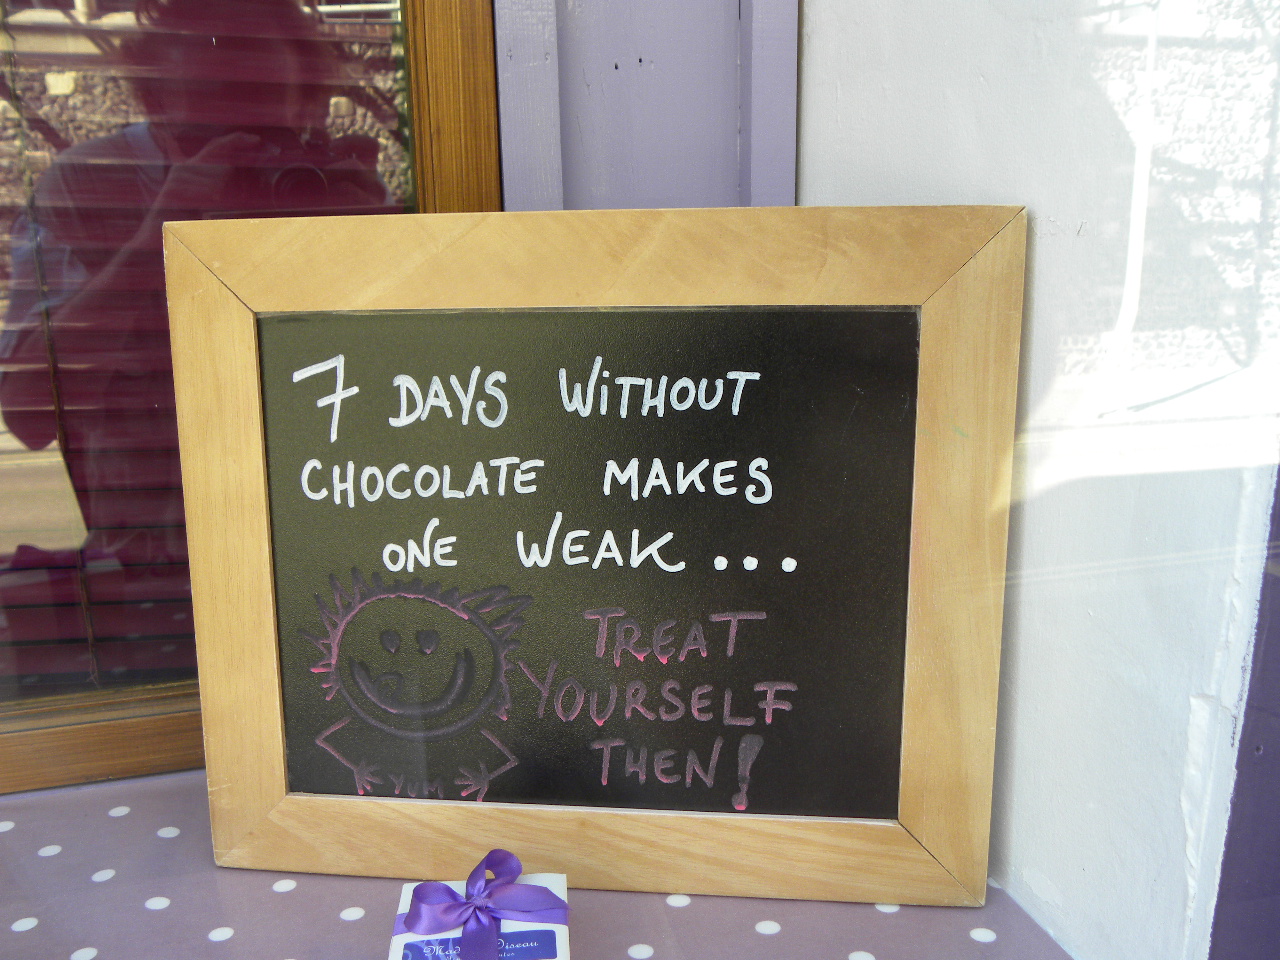 7 DAYS WITHOUT
CHOCOLATE MAKES
ONE WEAK...
TREAT
YOURSELF
THEN!
YUM